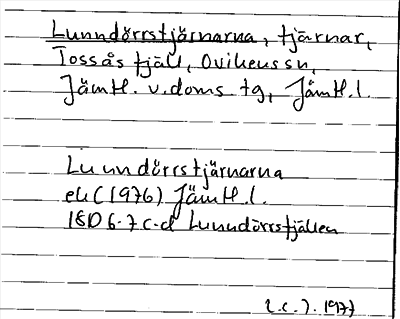 Lunndörrstjärnarna, tjärnar,
Tossås fjäll, Ovikens sn,
Jämtl. v. doms tg, Jämtl. l.
Lunndörrstjärnarna
ek (1976) Jämtl. l.
18D 6-7 c-d Lunndörrsfjällen
1977